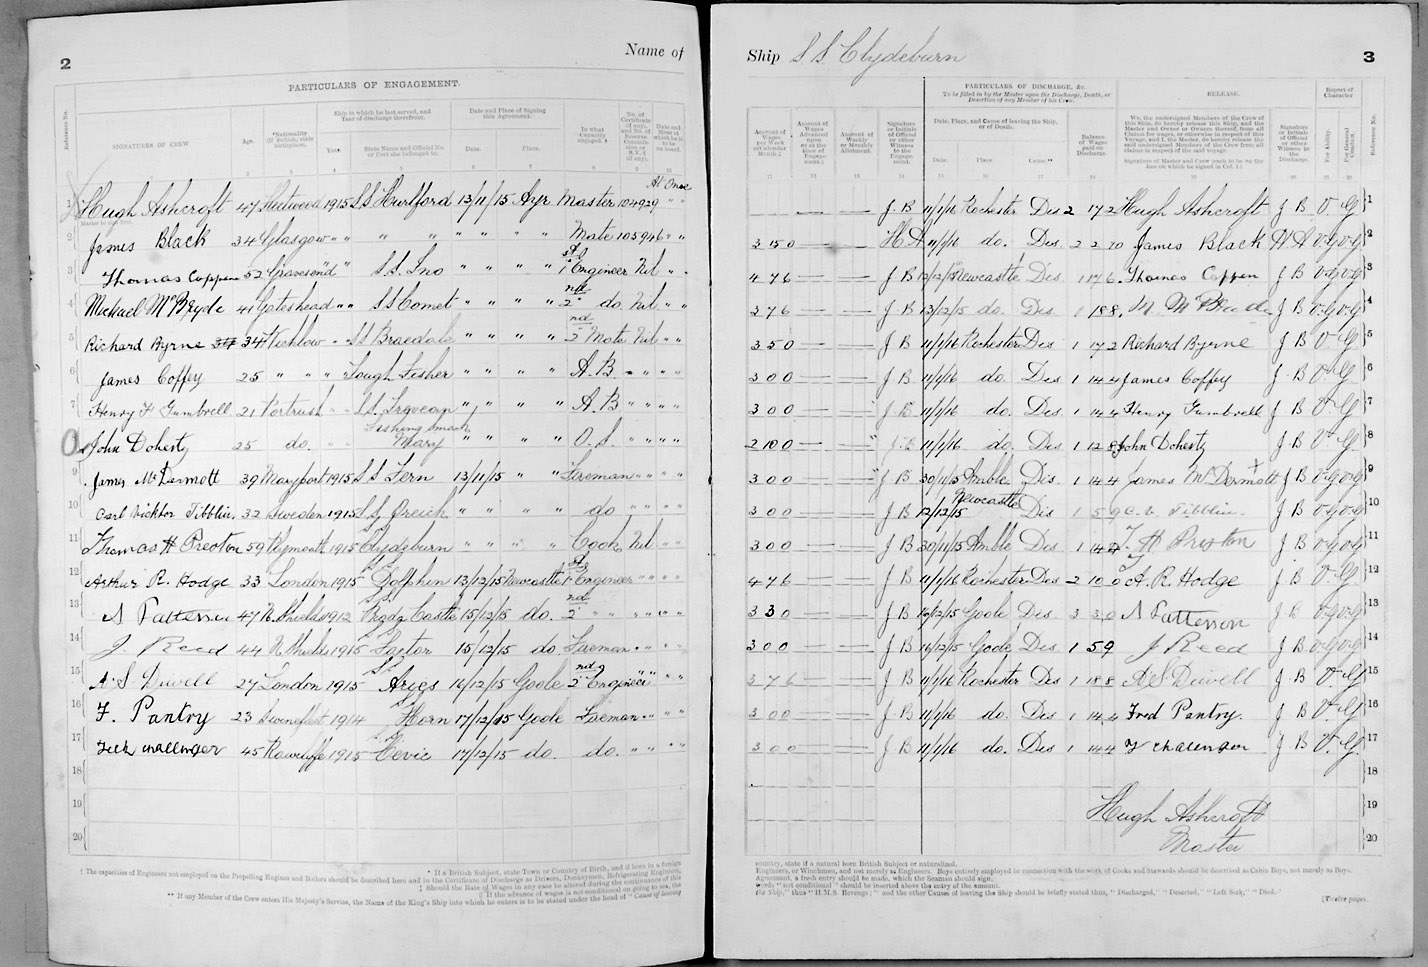 2
Name of
PARTICULARS OF ENGAGEMENT.
Reference No.
SIGNATURES OF CREW
Age.
*Nationality (If British, state birthplace).
Ship in which he last served, and Year of discharge therefrom.
Year.
State Name and Official No. or Port she belonged to.
Date and Place of Signing this Agreement.
Date.
Place.
In what Capacity engaged.
At Once
1 Hugh Ashcroft 47 Fleetwood 1915 S.S. Hurlford 13/11/15 Ayr Master 104929 " "
2 James Black 34 Glasgow " " " " " " " " Mate 105946 " "
3 Thomas Coppen 52 Gravesend " " S.S. Ino " " " " 1st Engineer Nil " "
4 Michael McBryde 41 Gateshead " " S.S. Comet " " " " 2nd do. Nil " "
5 Richard Byrne 34 Wicklow " S.S. Braedale " " " " 2nd Mate Nil " "
6 James Coffey 25 " " " " Lough Fisher " " " " A.B " " " "
7 Henry F Gumbrell 21 Portrush " " S.S. " " " " A.B " " " "
8 John Doherty 25 do. " " Fishing Smack Mary " " " " O.S. " " " "
9 James McDermott 39 Maryport 1915 S.S. Fern 13/11/15 " " Fireman " " " "
10 Carl Vicktor Tibblin. 32 Sweden 1915 S.S. " " " " do " " " "
11 Thomas H Preston 59 Plymouth 1915 Clydeburn " " " " Cook Nil " "
12 Arthur R. Hodge 33 London 1915 S.S. Dolphin 13/12/15 Newcastle 1st Engineer " " " "
13 A Patterson 47 N. Shields 1912 Castle 15/12/15 do. 2nd " " " " " "
14 J Reed 44 N Shields 1915 15/12/15 do Fireman " " " "
15 A. S Duvell 27 London 1915 S.S. Aries 16/12/15 Goole 2nd Engineer " " " "
16 F. Pantry 23 Swinefleet 1914 S.S. Horn 17/12/15 Goole Fireman " " " "
17 45 Rawcliffe 1915 S.S. Cevic 17/12/15 do. do. " " " "
18
19
20
† The capacities of Engineers not employed on the Propelling Engines and Boilers should be described here and in the Certificate of Discharge as Drivers, Donkeymen, Refrigerating Engineers,
* If a British Subject, state Town or Country of Birth, and if born in a foreign
‡ Should the Rate of Wages in any case be altered during the continuance of this
§ If the advance of wages is not conditional on going to sea, the
** If any Member of the Crew enters His Majesty's Service, the Name of the King's Ship into which he enters is to be stated under the head of "Cause of leaving
Ship S.S. Clydeburn
3
PARTICULARS OF DISCHARGE, &c.
To be filled in by the Master upon the Discharge, Death, or Desertion of any Member of his Crew.
RELEASE.
Report of Character
Amount of Wages per Week or Calendar Month.
Amount of Wages Advanced upon or at the time of Engagement.
Amount of Weekly or Monthly Allotment.
Signature or Initials of Official or other Witness to the Engagement.
Date, Place, and Cause of leaving the Ship, or of Death.
Date.
Place.
Cause.**
Balance of Wages paid on Discharge.
We, the undersigned Members of the Crew of this Ship, do hereby release this Ship, and the Master and Owner or Owners thereof, from all Claims for wages, or otherwise in respect of this Voyage, and I, the Master, do hereby release the said undersigned Members of the Crew from all claims in respect of the said voyage.
Signature or Initials of Official or other Witness to the Discharge.
For Ability.
For General Conduct.
Reference No.
J. B 11/1/16 Rochester Dis 2 17 2 Hugh Ashcroft J B V. G 1
3 15 0 H A 11/1/16 do. Dis. 2 2 10 James Black H A V.G V.G 2
4 7 6 J B 12/12/15 Newcastle Dis 1 17 6 Thomas Coppen J B V.G V.G 3
3 7 6 J B 13/12/15 do. Dis 1 18 8 M McBride J B V.G V.G 4
3 5 0 J B 11/1/16 Rochester Dis 1 17 2 Richard Byrne J B V G 5
3 0 0 J B 11/1/16 do. Dis 1 14 4 James Coffey J B V. G 6
3 0 0 J B 11/1/16 do. Dis 1 14 4 Henry Gumbrell J B V. G 7
2 10 0 J B 11/1/16 do. Dis 1 12 8 John Doherty J B V. G 8
3 0 0 J B 30/11/15 Amble Dis. 1 14 4 James McDermott J B V.G V.G 9
3 0 0 J B 12/12/15 Newcastle Dis 1 5 9 C. V. Tibblin. J B V.G V.G 10
3 0 0 J B 30/11/15 Amble Dis 1 14 4 T. H Preston J B V.G V.G 11
4 7 6 J B 11/1/16 Rochester Dis 2 10 0 A. R. Hodge J B V. G 12
3 3 0 J B 16/12/15 Goole Dis. 3 3 0 A Patterson J B V.G V.G 13
3 0 0 J B 16/12/15 Goole Dis. 1 5 9 J Reed J B V.G V.G 14
3 7 6 J B 11/1/16 Rochester Dis 1 18 8 A S Duvell J B V. G 15
3 0 0 J B 11/1/16 do. Dis 1 14 4 Fred Pantry. J B V. G 16
3 0 0 J B 11/1/16 do. Dis 1 14 4 J B V. G 17
18
Hugh Ashcroft 19
Master 20
country, state if a natural born British Subject or naturalized.
Engineers, or Winchmen, and not merely as Engineers. Boys entirely employed in connection with the work of Cooks and Stewards should be described as Cabin Boys, not merely as Boys.
Agreement, a fresh entry should be made, which the Seaman should sign.
words "not conditional" should be inserted above the entry of the amount.
the Ship," thus "H.M.S. Revenge;" and the other Causes of leaving the Ship should be briefly stated thus, "Discharged," "Deserted," "Left Sick," "Died."
[Twelve pages.